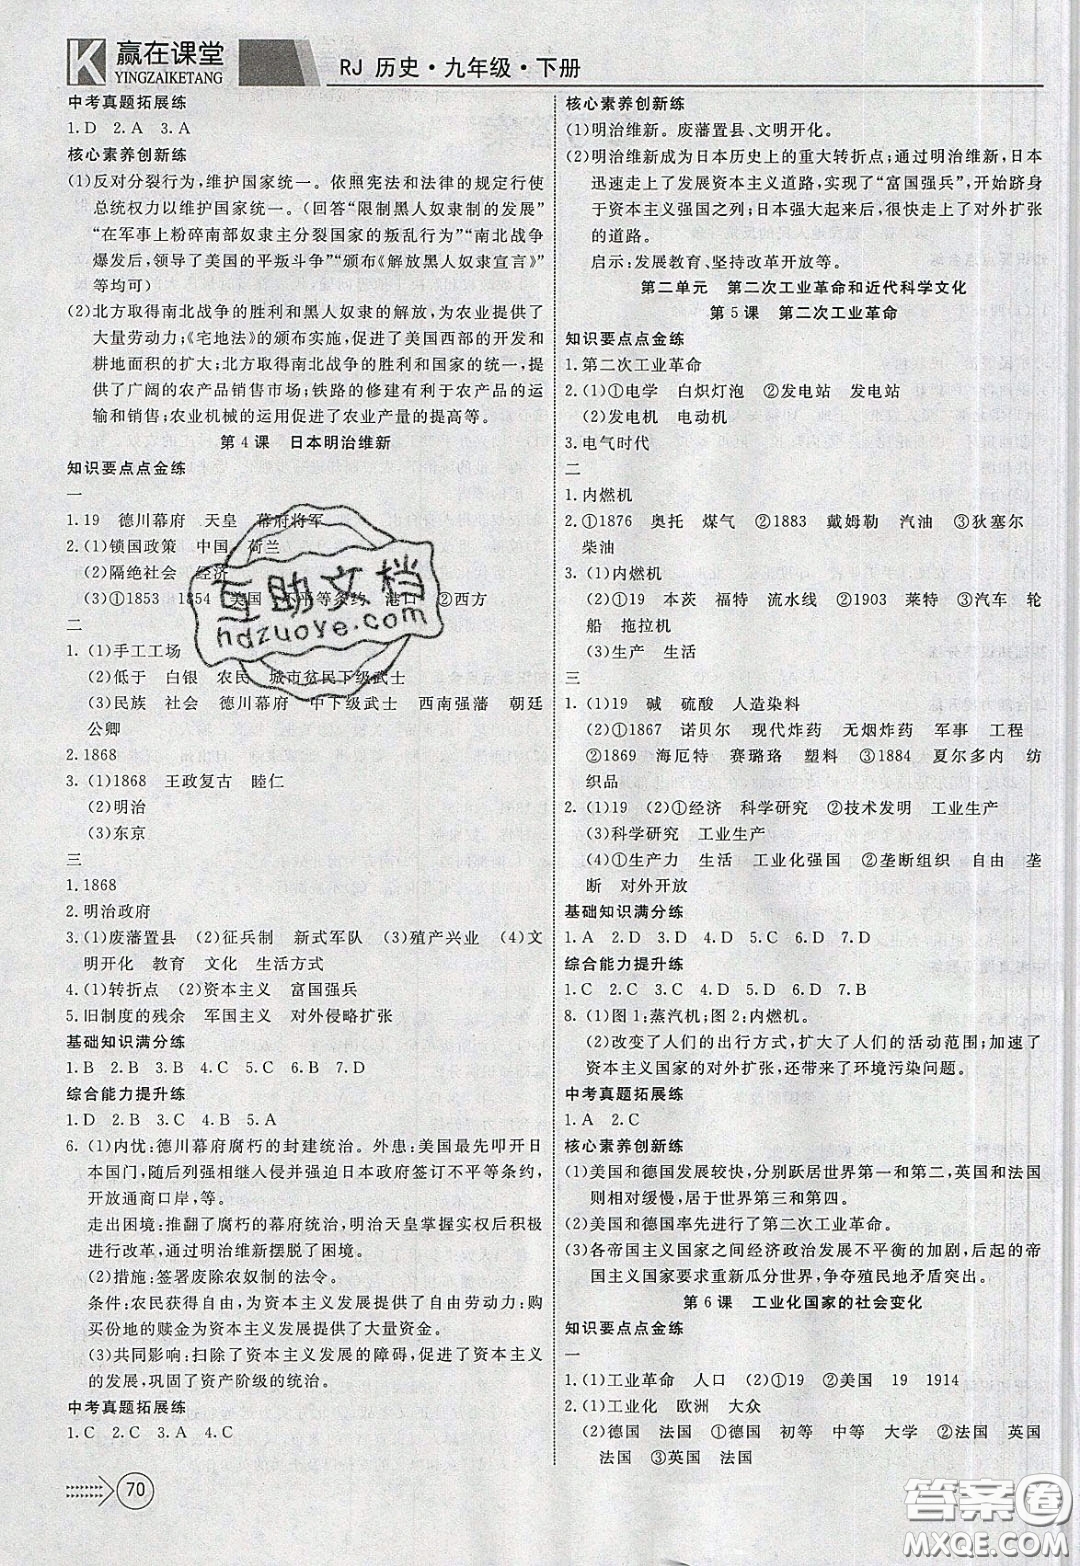 K 赢在课堂
YINGZAIKETANG
RJ 历史·九年级·下册
中考真题拓展练
1.D 2.A 3.A
核心素养创新练
(1)反对分裂行为,维护国家统一。依照宪法和法律的规定行使
总统权力以维护国家统一。(回答“限制黑人奴隶制的发展”
“在军事上粉碎南部奴隶主分裂国家的叛乱行为”“南北战争
爆发后,领导了美国的平叛斗争”“颁布《解放黑人奴隶宣言》”
等均可)
(2)北方取得南北战争的胜利和黑人奴隶的解放,为农业发展提供了
大量劳动力;《宅地法》的颁布实施,促进了美国西部的开发和
耕地面积的扩大;北方取得南北战争的胜利和国家的统一,提
供了广阔的农产品销售市场;铁路的修建有利于农产品的运
输和销售;农业机械的运用促进了农业产量的提高等。
第4课 日本明治维新
知识要点点金练
一
1.19 德川幕府 天皇 幕府将军
2.(1)锁国政策 中国 荷兰
(2)隔绝社会 经济
(3)①1853 1854 美国 不平等条约 港口 ②西方
二
1.(1)手工工场
(2)低于 白银 农民 城市贫民下级武士
(3)民族 社会 德川幕府 中下级武士 西南强藩 朝廷
公卿
2.1868
3.(1)1868 王政复古 睦仁
(2)明治
(3)东京
三
1.1868
2.明治政府
3.(1)废藩置县 (2)征兵制 新式军队 (3)殖产兴业 (4)文
明开化 教育 文化 生活方式
4.(1)转折点 (2)资本主义 富国强兵
5.旧制度的残余 军国主义 对外侵略扩张
基础知识满分练
1.B 2.B 3.C 4.D 5.C 6.B 7.D
综合能力提升练
1.D 2.B 3.C 4.B 5.A
6.(1)内忧:德川幕府腐朽的封建统治。外患:美国最先叩开日
本国门,随后列强相继入侵并强迫日本政府签订不平等条约,
开放通商口岸,等。
走出困境:推翻了腐朽的幕府统治,明治天皇掌握实权后积极
进行改革,通过明治维新摆脱了困境。
(2)措施:签署废除农奴制的法令。
条件:农民获得自由,为资本主义发展提供了自由劳动力;购
买份地的赎金为资本主义发展提供了大量资金。
(3)共同影响:扫除了资本主义发展的障碍,促进了资本主义
的发展,巩固了资产阶级的统治。
中考真题拓展练
1.C 2.C 3.A 4.C
70
核心素养创新练
(1)明治维新。废藩置县、文明开化。
(2)明治维新成为日本历史上的重大转折点;通过明治维新,日本
迅速走上了发展资本主义道路,实现了“富国强兵”,开始跻身
于资本主义强国之列;日本强大起来后,很快走上了对外扩张
的道路。
启示:发展教育、坚持改革开放等。
第二单元 第二次工业革命和近代科学文化
第5课 第二次工业革命
知识要点点金练
1.第二次工业革命
2.(1)①电学 白炽灯泡 ②发电站 发电站
(2)发电机 电动机
3.电气时代
二
1.内燃机
2.①1876 奥托 煤气 ②1883 戴姆勒 汽油 ③狄塞尔
柴油
3.(1)内燃机
(2)①19 本茨 福特 流水线 ②1903 莱特 ③汽车 轮
船 拖拉机
(3)生产 生活
三
1.(1)19 碱 硫酸 人造染料
(2)①1867 诺贝尔 现代炸药 无烟炸药 军事 工程
②1869 海厄特 赛璐珞 塑料 ③1884 夏尔多内 纺
织品
2.(1)19 (2)①经济 科学研究 ②技术发明 工业生产
(3)科学研究 工业生产
(4)①生产力 生活 工业化强国 ②垄断组织 自由 垄
断 对外开放
基础知识满分练
1.A 2.D 3.D 4.D 5.C 6.D 7.D
综合能力提升练
1.C 2.C 3.D 4.B 5.D 6.C 7.D
8.(1)图1:蒸汽机;图2:内燃机。
(2)改变了人们的出行方式,扩大了人们的活动范围;加速了
资本主义的对外扩张,还带来了环境污染问题。
中考真题拓展练
1.A 2.C
核心素养创新练
(1)美国和德国发展较快,分别跃居世界第一和第二,英国和法国
则相对缓慢,居于世界第三和第四。
(2)美国和德国率先进行了第二次工业革命。
(3)各帝国主义国家之间经济政治发展不平衡的加剧,后起的帝
国主义国家要求重新瓜分世界,争夺殖民地矛盾突出。
第6课 工业化国家的社会变化
知识要点点金练
一
1.(1)工业革命 人口 (2)①英国 ②美国 19 1914
2.(1)工业化 欧洲 大众
(2)德国 法国 ①德国 初等 中等 大学 ②法国 英国
法国 ③英国 法国
互助文档
hdzuoye.com
答案圈
MXQE.COM